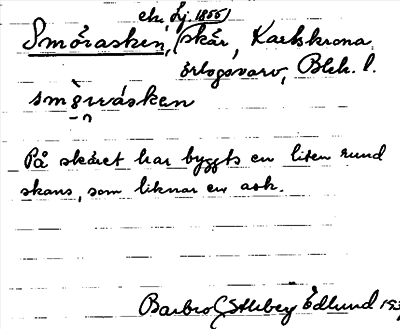 ek. Lj. 1855)
Smörasken, (skär, Karlskrona
örlogsvarv, Blek. l.
smö̀rrásken
På skäret har byggts en liten rund
skans, som liknar en ask.
Barbro Edlund